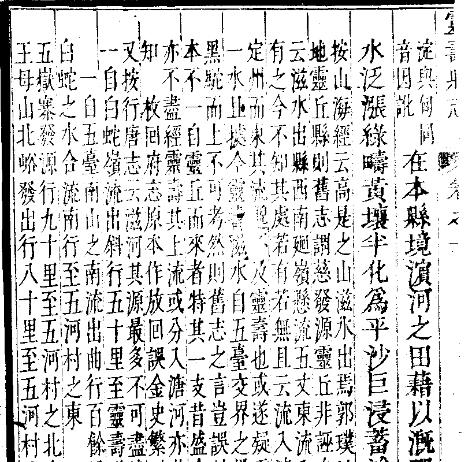 靈壽縣志 卷之一
流與旬同
音因訛
在本縣境濵河之田藉以漑
水泛漲綠疇黃壤半化為平沙巨浸蓄
按山海經云高是之山滋水出焉郭璞
地靈丘縣則舊志謂慈發源靈丘非誣
云滋水出縣西南廻嶺懸流五丈東流
有之今不知其處若有若無且云流入
定州而東其流及靈壽也或遂疑
一水且據今靈壽水自五臺交界之
黑駝而上不可考然則舊志之言豈誤
本不一自靈丘而來者特其一支昔盛
亦不盡經靈壽其上流或分入溏河亦
知 枚回府志原本作放回誤金史繁
又按行唐志云滋河其源最多不可盡
一自白蛇嶺流出斜行五十里至靈壽
一自五臺南山之南流出曲行百餘
白蛇之水合流南行至五河村之東
五嶽寨發源行九十里至五河村之北
王母山北峪發出行八十里至五河村